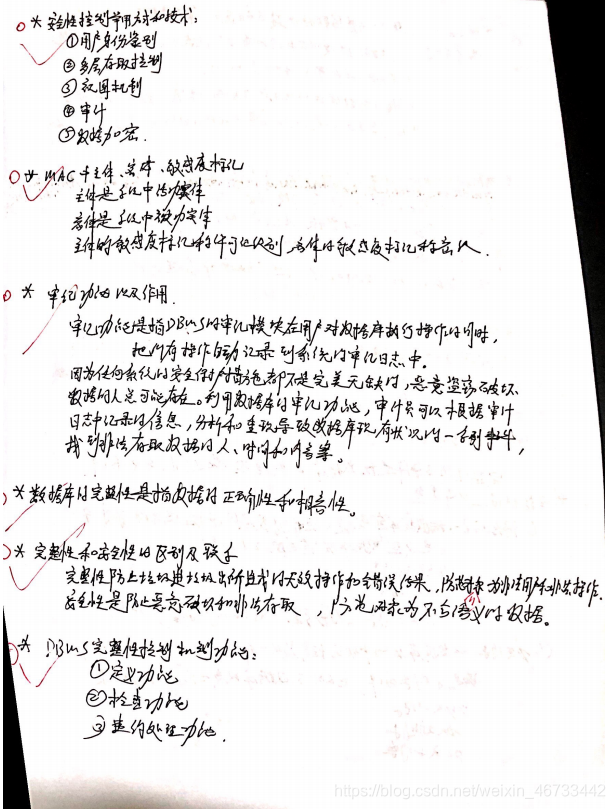 * 安全性控制常用方式和技术:
①用户身份鉴别
②多层存取控制
③视图机制
④审计
⑤数据加密.
* MAC中主体、客体、敏感度标记
主体是系统中活动实体
客体是系统中被动实体
主体的敏感度标记称许可证级别,客体的敏感度标记称密级.
* 审记功能以及作用.
审记功能是指DBMS的审记模块在用户对数据库执行操作的同时,
把所有操作自动记录到系统的审记日志中。
因为任何系统的安全保护措施都不是完美无缺的,恶意盗窃破坏
数据的人总可能存在。利用数据库的审记功能,审计员可以根据审计
日志中记录的信息,分析和重现导致数据库现有状况的一系列事件,
找到非法存取数据的人、时间和内容等。
* 数据库的完整性是指数据的正确性和相容性。
* 完整性和安全性的区别及联系
完整性防止垃圾进垃圾出所造成的无效操作和错误结果,防范对象为非法用户和非法操作.
安全性是防止恶意破坏和非法存取,防范对象为不合语义的数据。
* DBMS完整性控制机制功能:
①定义功能
②检查功能
③违约处理功能.
https://blog.csdn.net/weixin_46733442